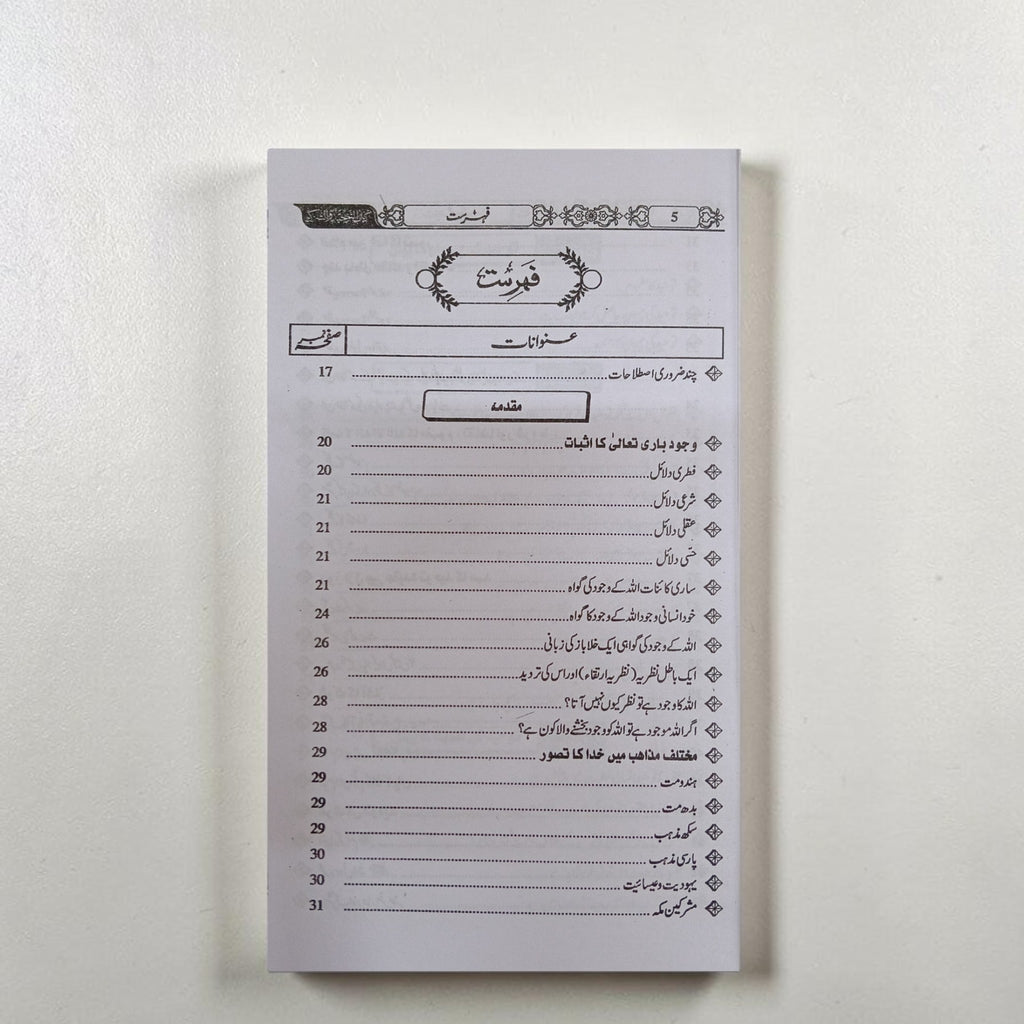 5 فہرست
فہرست
عنوانات صفحہ نمبر
چند ضروری اصطلاحات 17
مقدمہ
وجود باری تعالیٰ کا اثبات 20
فطری دلائل 20
شرعی دلائل 21
عقلی دلائل 21
حسّی دلائل 21
ساری کائنات اللہ کے وجود کی گواہ 21
خود انسانی وجود اللہ کے وجود کا گواہ 24
اللہ کے وجود کی گواہی ایک خلا باز کی زبانی 26
ایک باطل نظریہ (نظریہ ارتقاء) اور اس کی تردید 26
اللہ کا وجود ہے تو نظر کیوں نہیں آتا؟ 28
اگر اللہ موجود ہے تو اللہ کو وجود بخشنے والا کون ہے؟ 28
مختلف مذاھب میں خدا کا تصور 29
ہندو مت 29
بدھ مت 29
سکھ مذہب 29
پارسی مذہب 30
یہودیت و عیسائیت 30
مشرکین مکہ 31